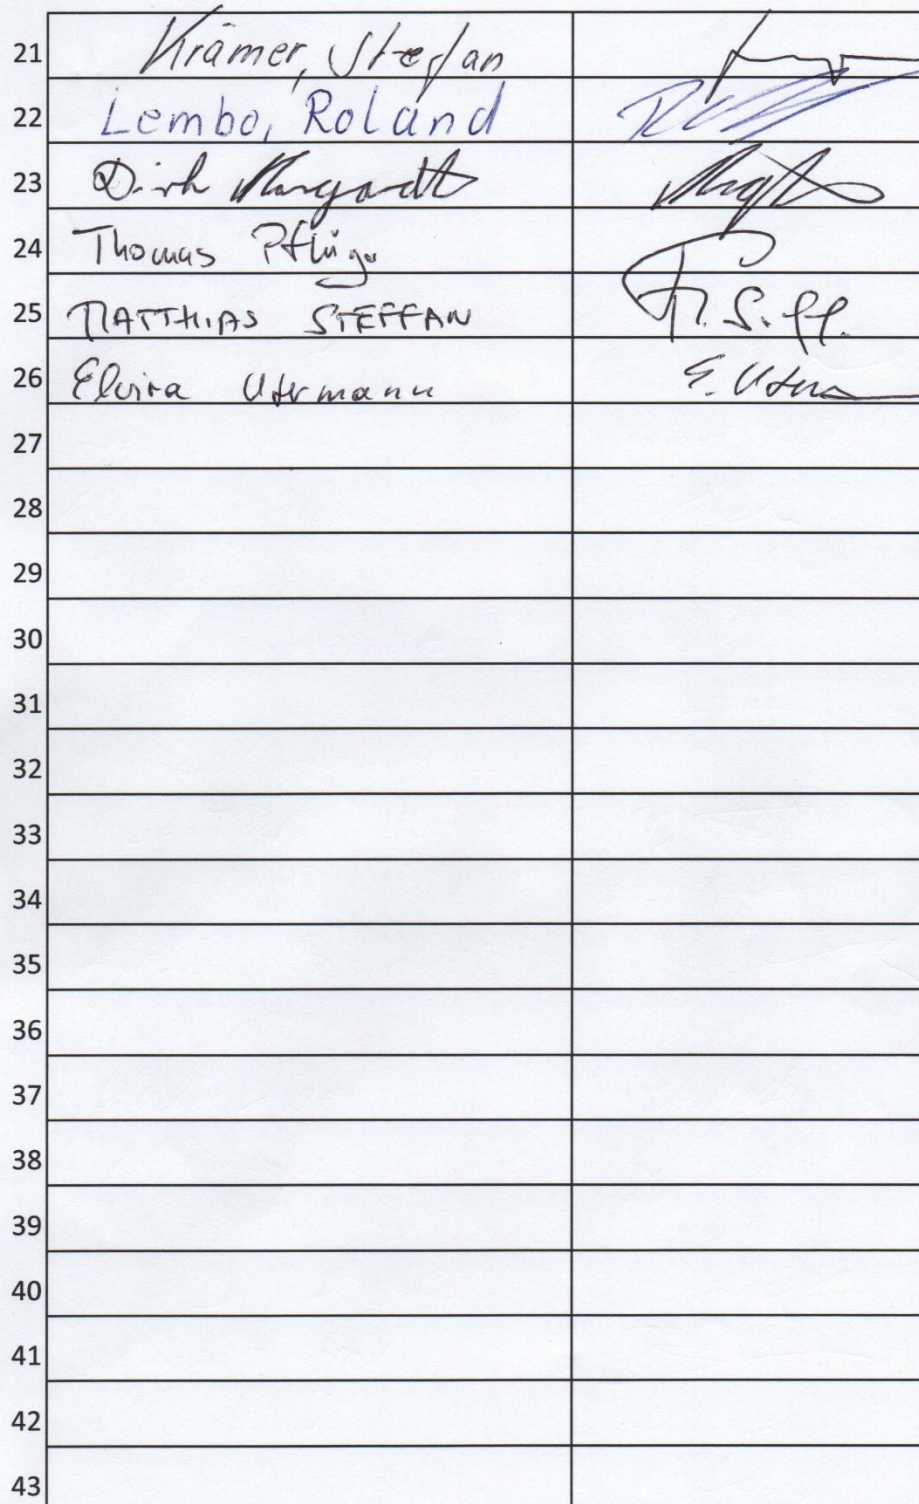 21 Krämer, Stefan
22 Lembo, Roland
23 Dirk
24 Thomas Pflüger
25 MATTHIAS STEFFAN M. Steff.
26 Elvira Utermann E. Uterm
27
28
29
30
31
32
33
34
35
36
37
38
39
40
41
42
43